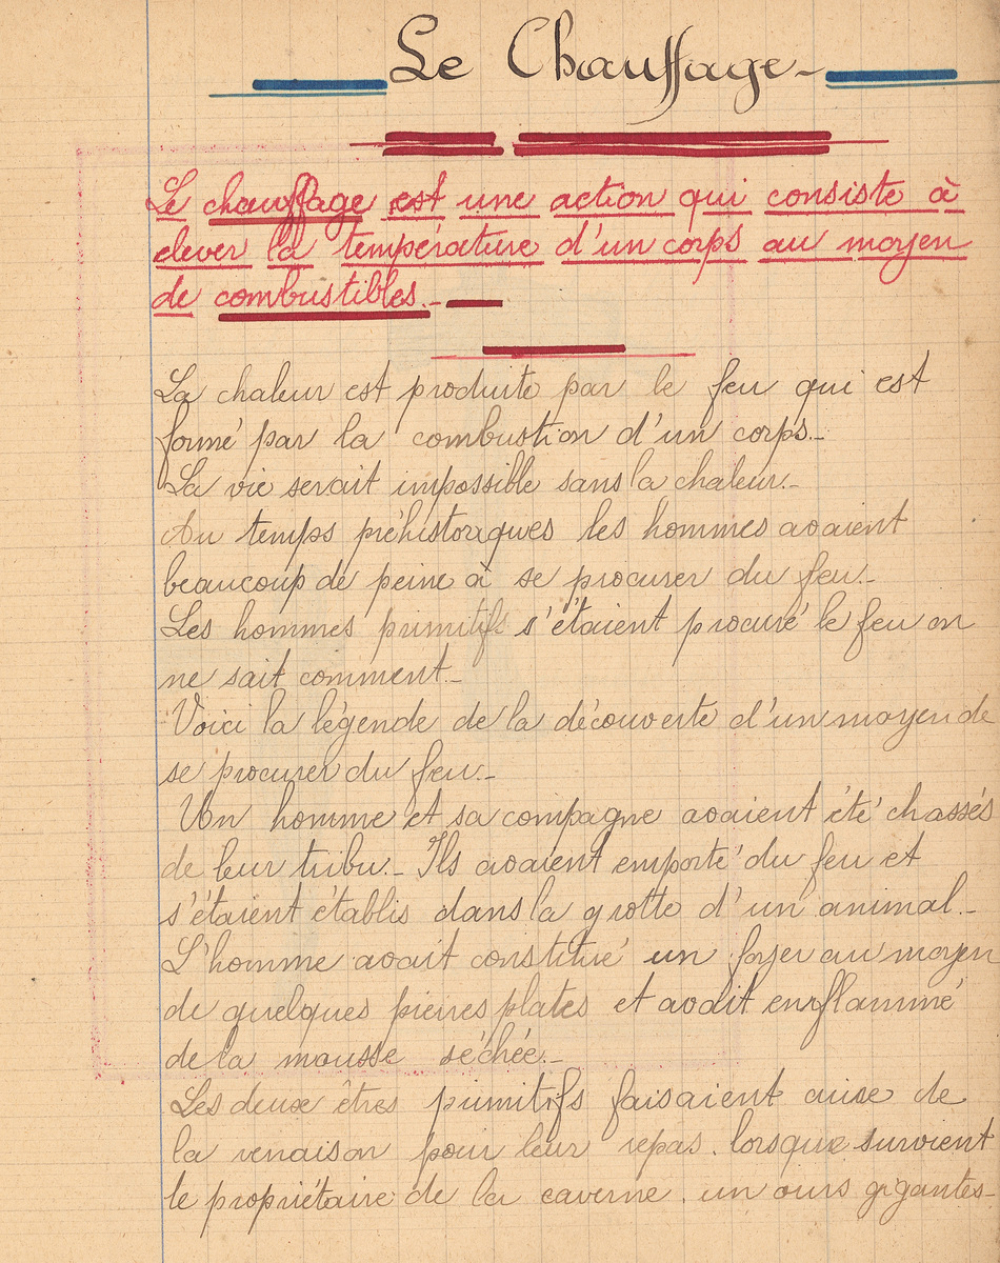 Le Chauffage
Le chauffage est une action qui consiste à
elever la température d'un corps au moyen
de combustibles.
La chaleur est produite par le feu qui est
formé par la combustion d'un corps.
La vie serait impossible sans la chaleur.
Au temps préhistoriques les hommes avaient
beaucoup de peine à se procurer du feu.
Les hommes primitifs s'étaient procuré le feu on
ne sait comment.
Voici la légende de la découverte d'un moyen de
se procurer du feu.
Un homme et sa compagne avaient été chassés
de leur tribu. Ils avaient emporté du feu et
s'étaient établis dans la grotte d'un animal.
L'homme avait constitué un foyer au moyen
de quelques pierres plates et avait enflammé
de la mousse séchée.
Les deux êtres primitifs faisaient cuire de
la venaison pour leur repas. lorsque survient
le propriétaire de la caverne. un ours gigantes-